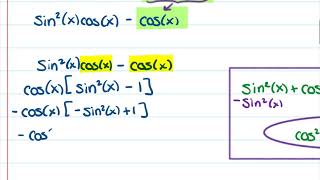 Sin²(x)cos(x) - cos(x)
Sin²(x)cos(x) - cos(x)
cos(x)[sin²(x) - 1]
-cos(x)[-sin²(x)+1]
- cos
Sin²(x) + cos
-Sin²(x)
cos²